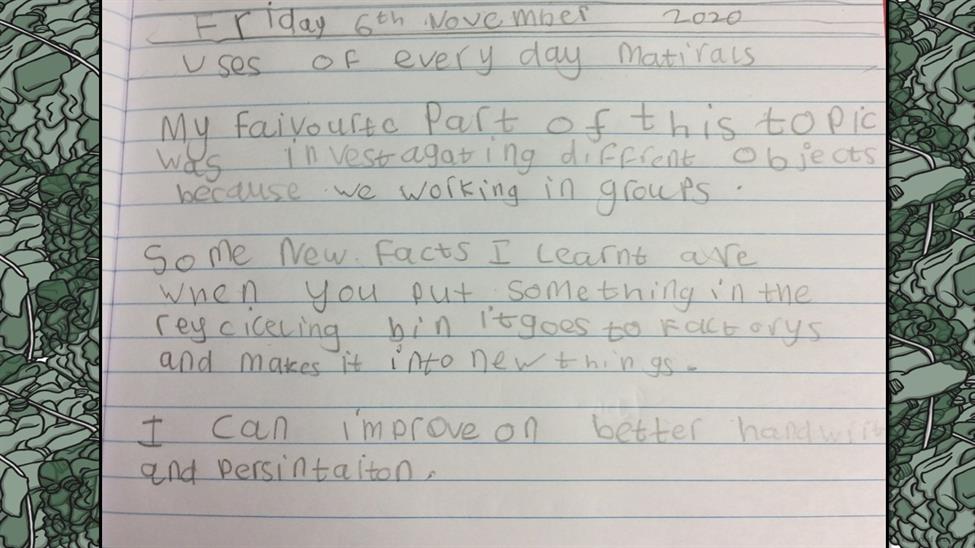 Friday 6th November 2020
Uses of every day Matirals
My faivourte Part of this topic
was investagating diffrent objects
because we working in groups.
Some New Facts I Learnt are
when you put something in the
reyciceling bin it goes to Factorys
and makes it into new things.
I can improve on better handwrit
and persintaiton.